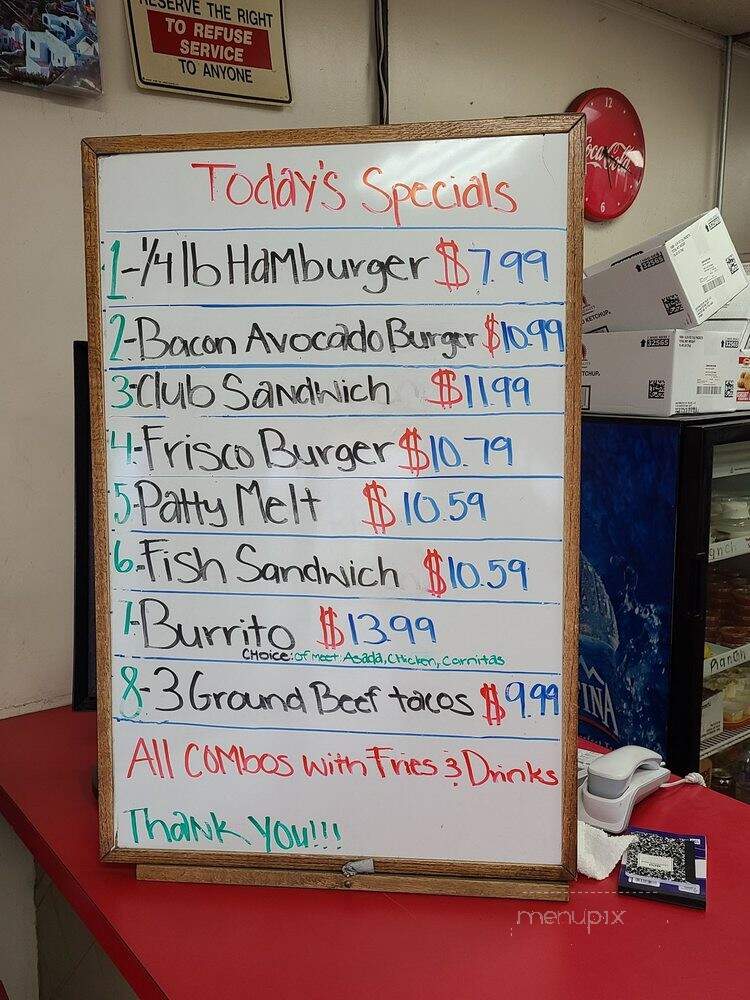 RESERVE THE RIGHT
TO REFUSE
SERVICE
TO ANYONE
12
Coca-Cola
6
Today's Specials
1-1/4 lb Hamburger $7.99
2-Bacon Avocado Burger $10.99
3-Club Sandwich $11.99
4-Frisco Burger $10.79
5-Patty Melt $10.59
6-Fish Sandwich $10.59
7-Burrito $13.99
Choice: of meet: Asada, Chicken, Carnitas
8-3 Ground Beef tacos $9.99
All combos with Fries & Drinks
Thank You!!!
KETCHUP.
32565
32565
32565
Ranch
INA
menupix